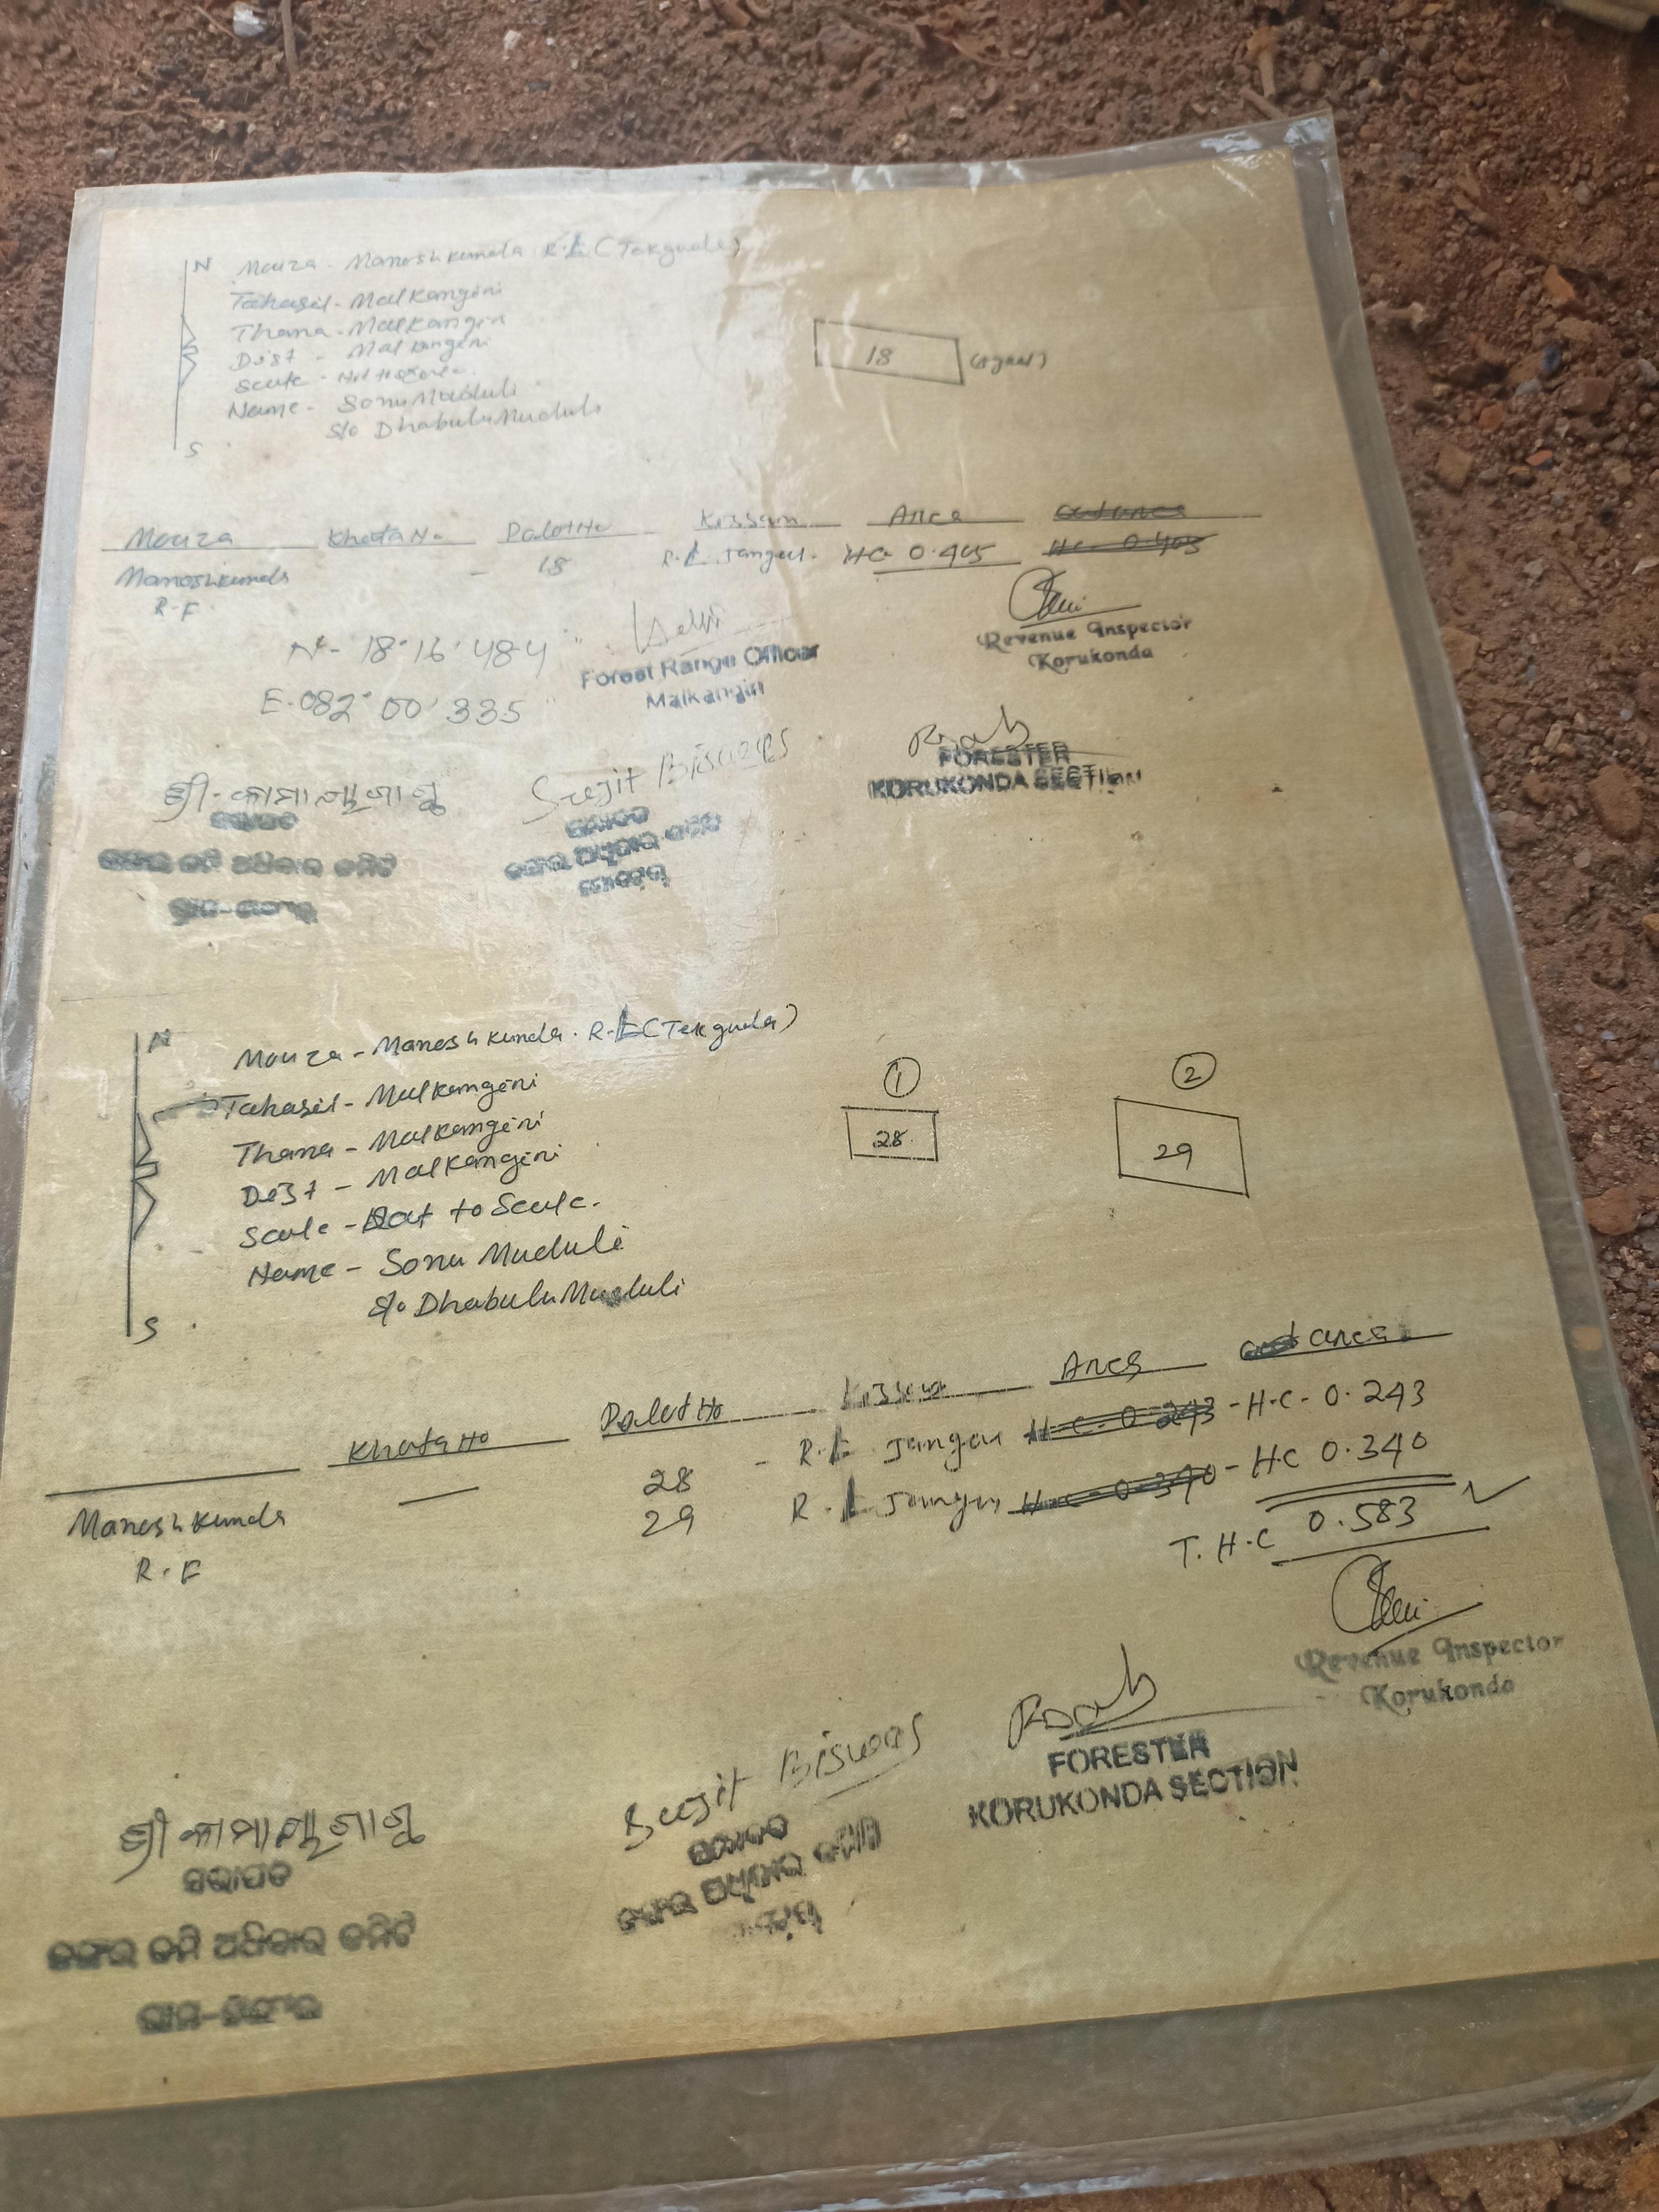 N
Mouza - Manoshkunda R.F (Tekguda)
Tahasil - Malkangiri
Thana - Malkangiri
Dist - Malkangiri
Scale - Not to Scale.
Name - Sonu Muduli
S/o Dhabulu Muduli
S
18
Mouza Khata No Palot No Kissam Area
Manoshkunda - 18 R.F Jangal. HC 0.405 HC 0.405
R.F
N- 18°16'484"
E.082°00'335"
Forest Range Officer
Malkangiri
Revenue Inspector
Korukonda
Sujit Biswas
FORESTER
KORUKONDA SECTION
ଜଙ୍ଗଲ ଜମି ଅଧିକାର କମିଟି
N
Mouza - Manoshkunda. R.F (Tekguda)
Tahasil - Malkangiri
Thana - Malkangiri
Dist - Malkangiri
Scale - Not to Scale.
Name - Sonu Muduli
S/o Dhabulu Muduli
S
1 2
28 29
Khata No Palot No Kissam Area area
Manoshkunda — 28 - R.F Jangal H.C-0.243 - H.C-0.243
R.F 29 R.F Jangal H.C-0.340 - H.C 0.340
T. H.C 0.583
Revenue Inspector
Korukonda
Sujit Biswas
FORESTER
KORUKONDA SECTION
ସଭାପତି
ଜଙ୍ଗଲ ଜମି ଅଧିକାର କମିଟି